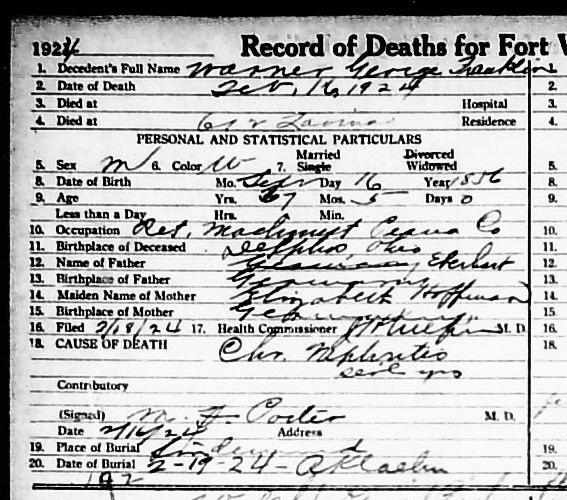 1924 Record of Deaths for Fort
1. Decedent's Full Name Warner George Franklin 1.
2. Date of Death Feb. 16, 1924 2.
3. Died at Hospital 3.
4. Died at Residence 4.
PERSONAL AND STATISTICAL PARTICULARS
5. Sex M 6. Color W 7. Married Single Divorced Widowed 5.
8. Date of Birth Mo. Sept Day 16 Year 1856 8.
9. Age Yrs. 67 Mos. 5 Days 0 9.
Less than a Day Hrs. Min.
10. Occupation Ret. Machinist Co 10.
11. Birthplace of Deceased Delphos, Ohio 11.
12. Name of Father 12.
13. Birthplace of Father Germany 13.
14. Maiden Name of Mother Elizabeth Hoffman 14.
15. Birthplace of Mother Germany 15.
16. Filed 2/18/24 17. Health Commissioner M. D. 16.
18. CAUSE OF DEATH 18.
Chr. Nephritis
Contributory
(Signed) M. F. Porter M. D.
Date 2/16/24 Address
19. Place of Burial Lindenwood 19.
20. Date of Burial 2-19-24- 20.
192